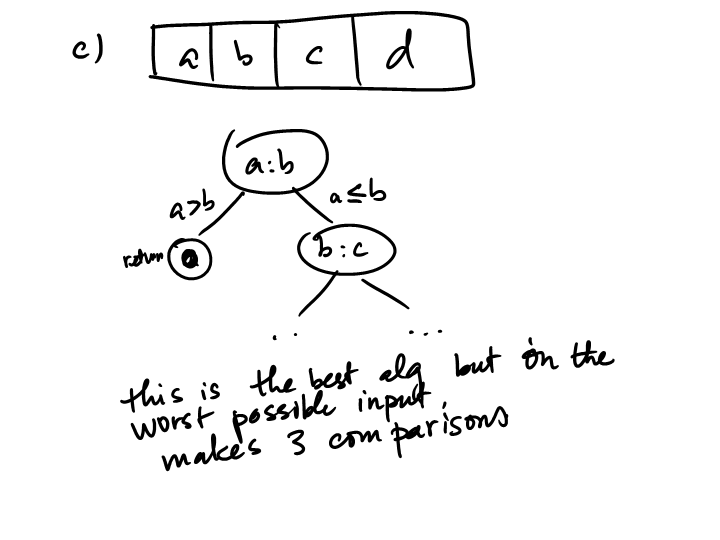 c)
a b c d
a:b
a>b a≤b
return a b:c
.. ...
this is the best alg but on the
worst possible input,
makes 3 comparisons